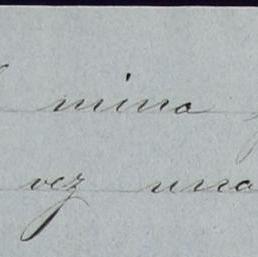 mina
vez una